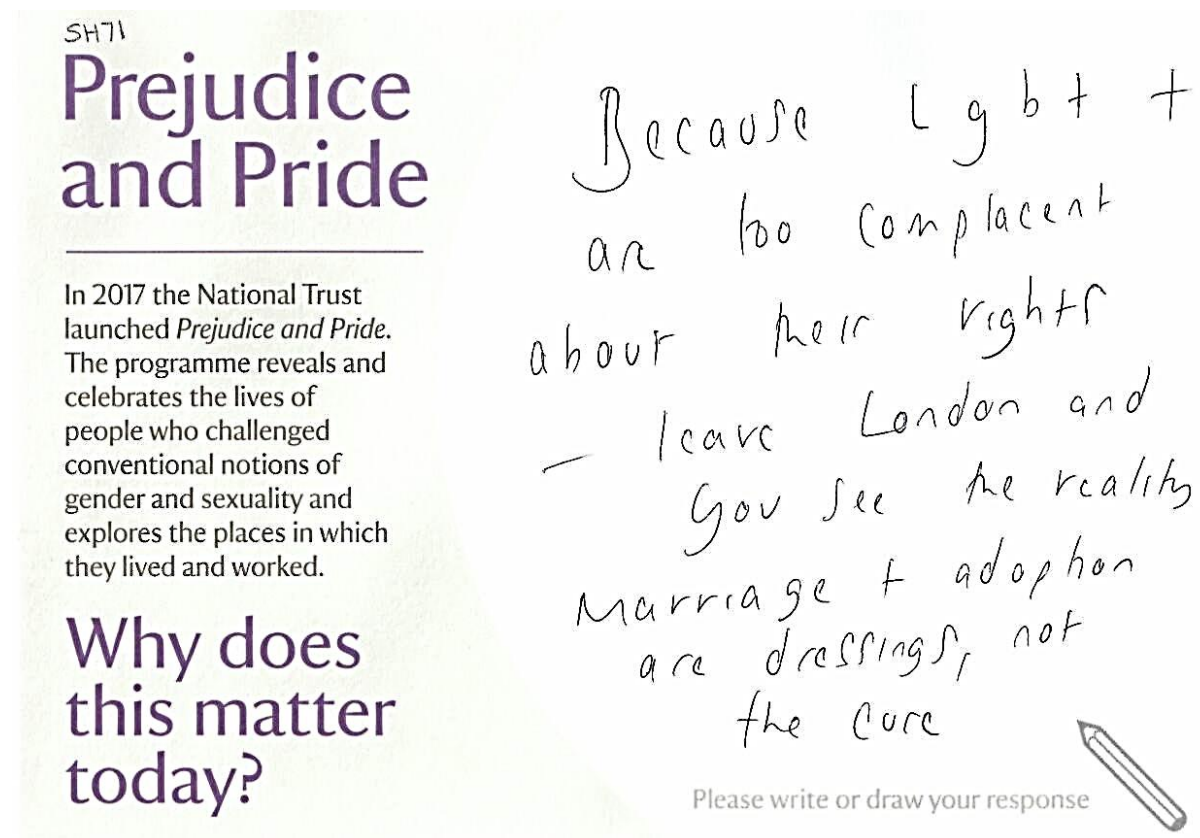 SH71
Prejudice
and Pride
In 2017 the National Trust
launched Prejudice and Pride.
The programme reveals and
celebrates the lives of
people who challenged
conventional notions of
gender and sexuality and
explores the places in which
they lived and worked.
Why does
this matter
today?
Because lgbt +
are too complacent
about their rights
– leave London and
you see the reality
Marriage + adoption
are dressings, not
the cure
Please write or draw your response